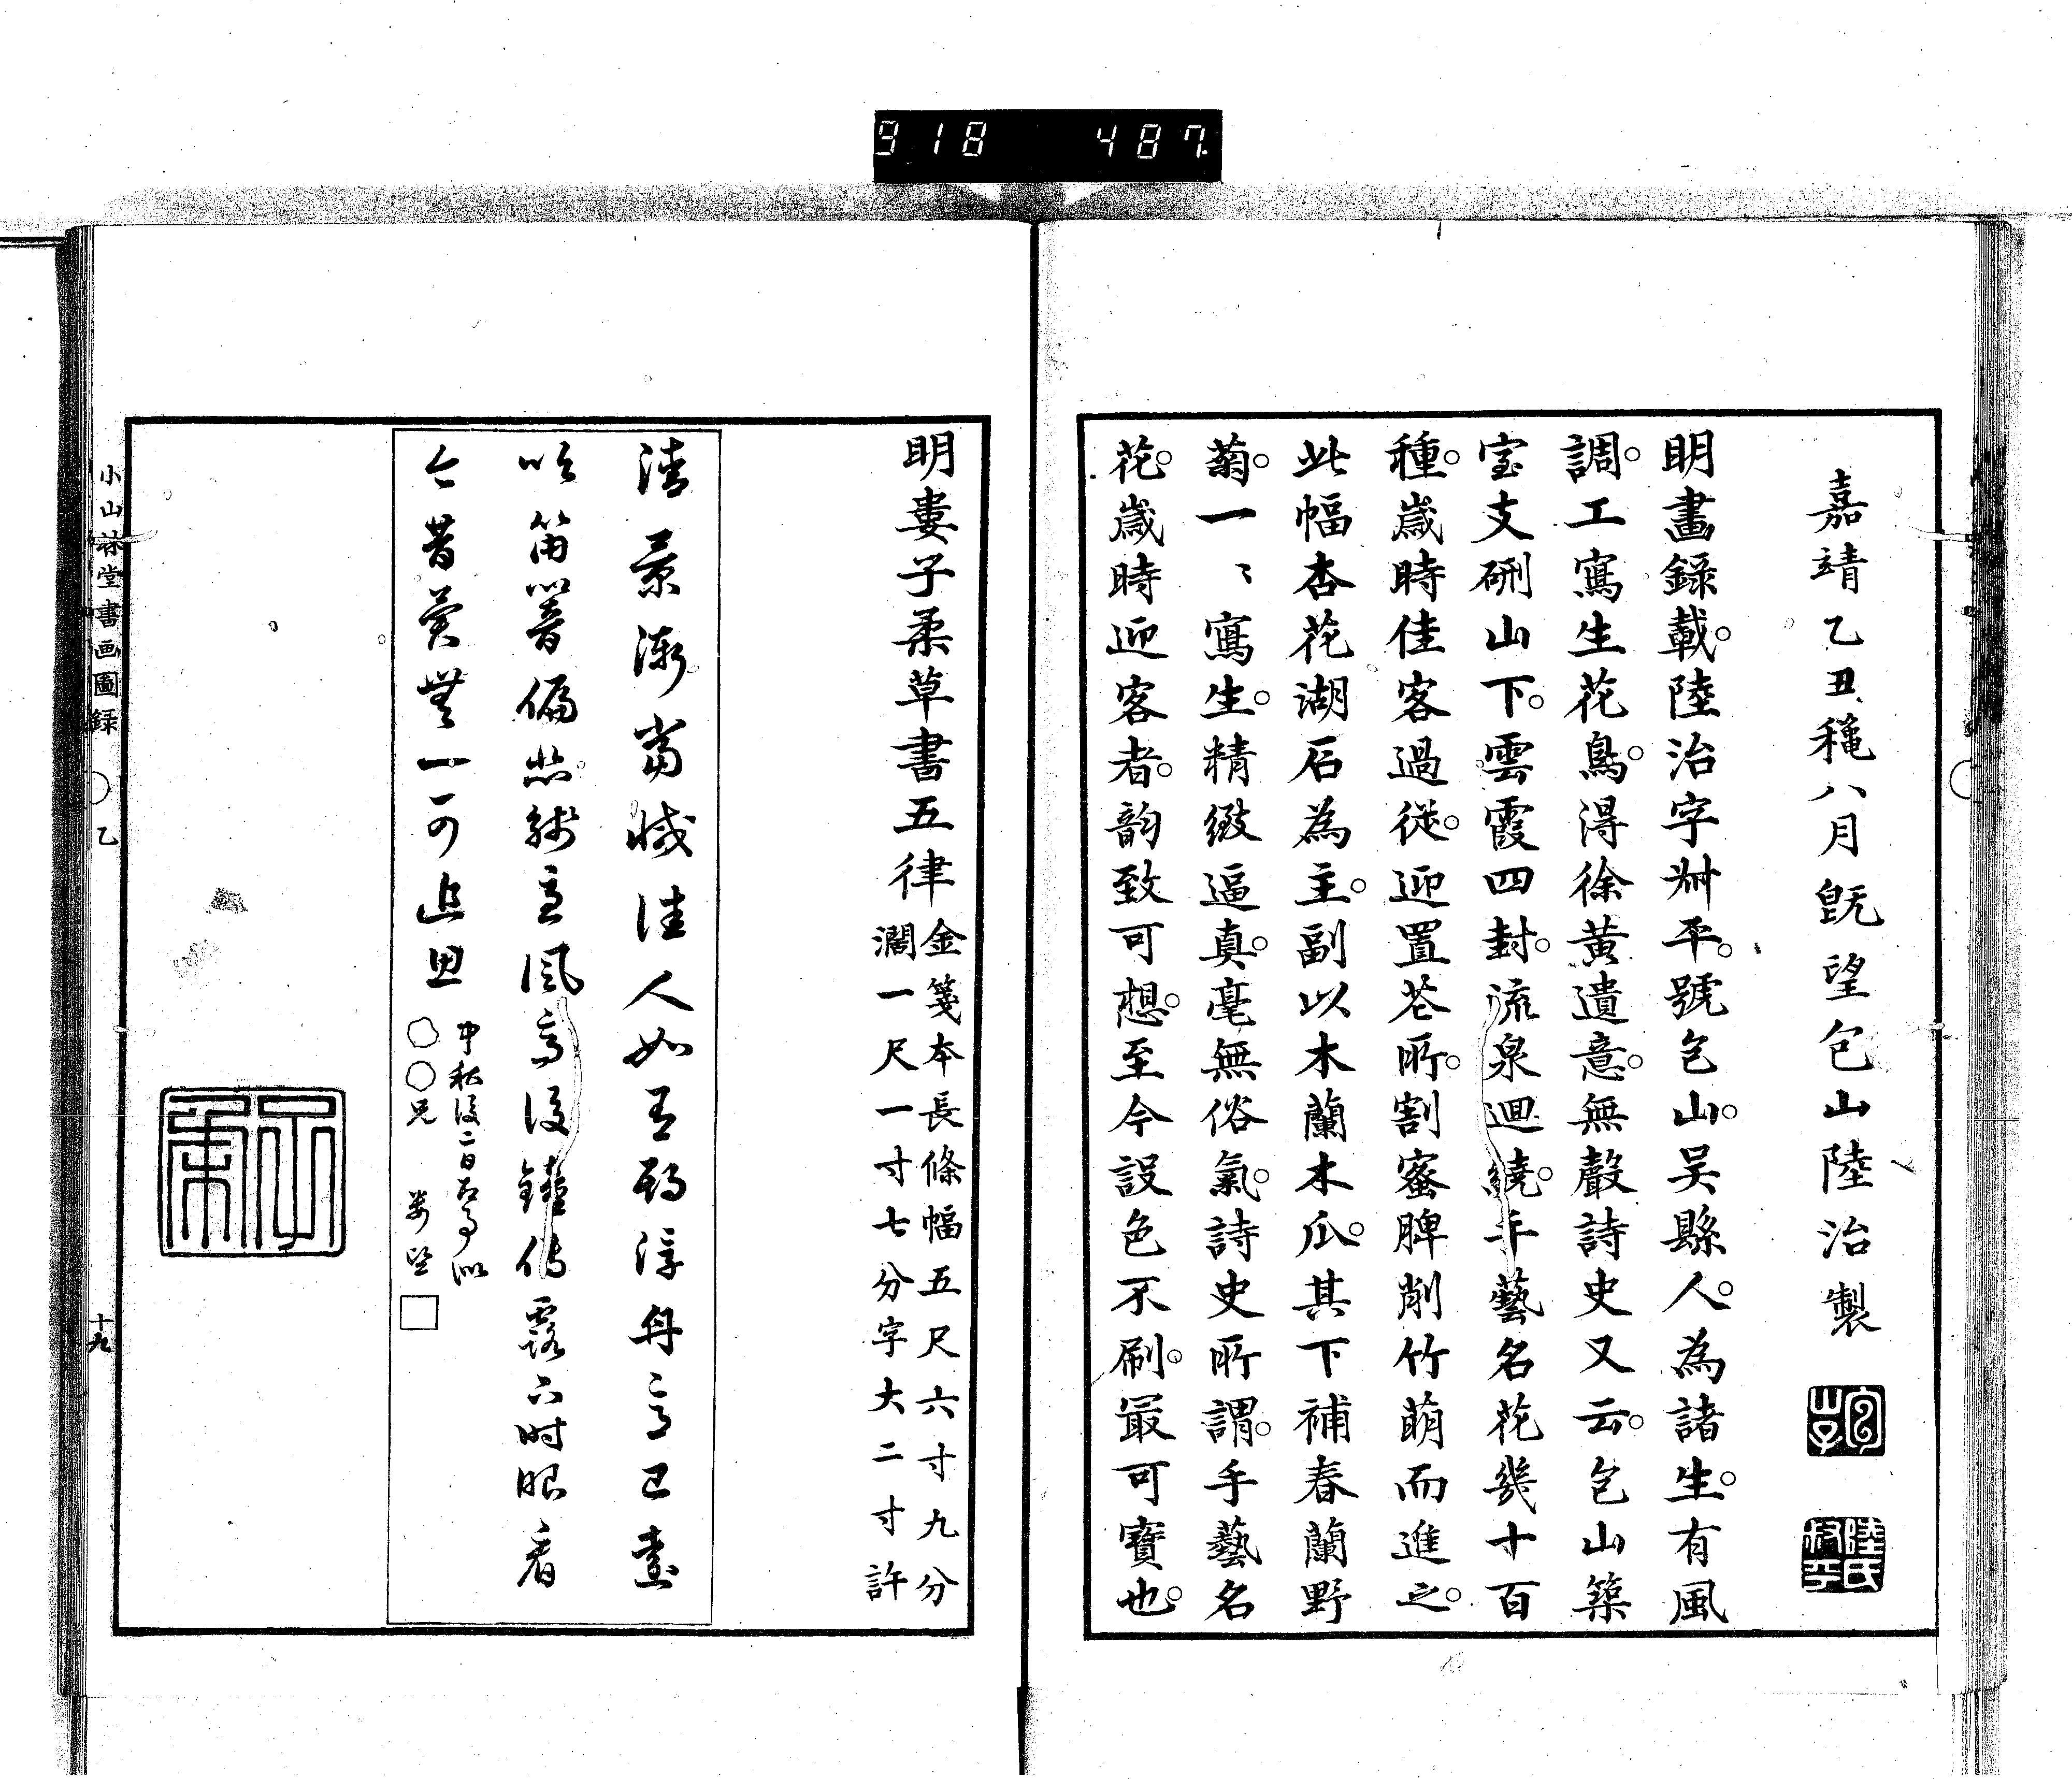 918 487
嘉靖乙丑龝八月既望包山陸治製
包山子
陸氏叔平
明畫録載。陸治字叔平。號包山。吴縣人。為諸生。有風
調。工寫生花鳥。得徐黄遺意。無聲詩史又云。包山築
室支硎山下。雲霞四封。流泉迴繞。手藝名花幾十百
種。歳時佳客過從。迎置花所。割蜜脾削竹萌而進之。
此幅杏花湖石為主。副以木蘭木瓜。其下補春蘭野
菊。一〻寫生。精緻逼真。毫無俗氣。詩史所謂。手藝名
花。歳時迎客者。韵致可想。至今設色不刷。最可寶也。
明婁子柔草書五律
金箋本長條幅五尺六寸九分
濶一尺一寸七分字大二寸許
清景漸當 佳人如 已
吹笛 偏 風高後鐘 露下时眼看
今昔 一可追思
中秋後二日
〇〇兄 婁堅
子柔
小山林堂書画圖録 〇 乙 十九